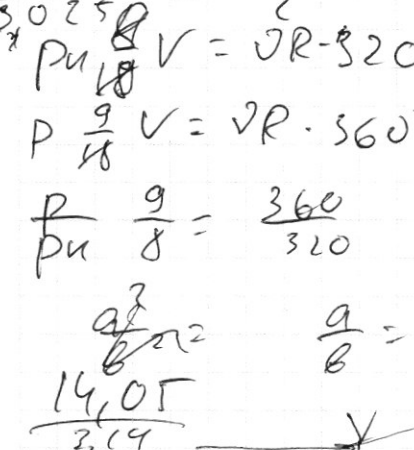 3,0250
Pн 8/18 V = νR · 320
P 9/18 V = νR · 360
P/Pн 9/8 = 360/320
a/b =
14,05/3,14